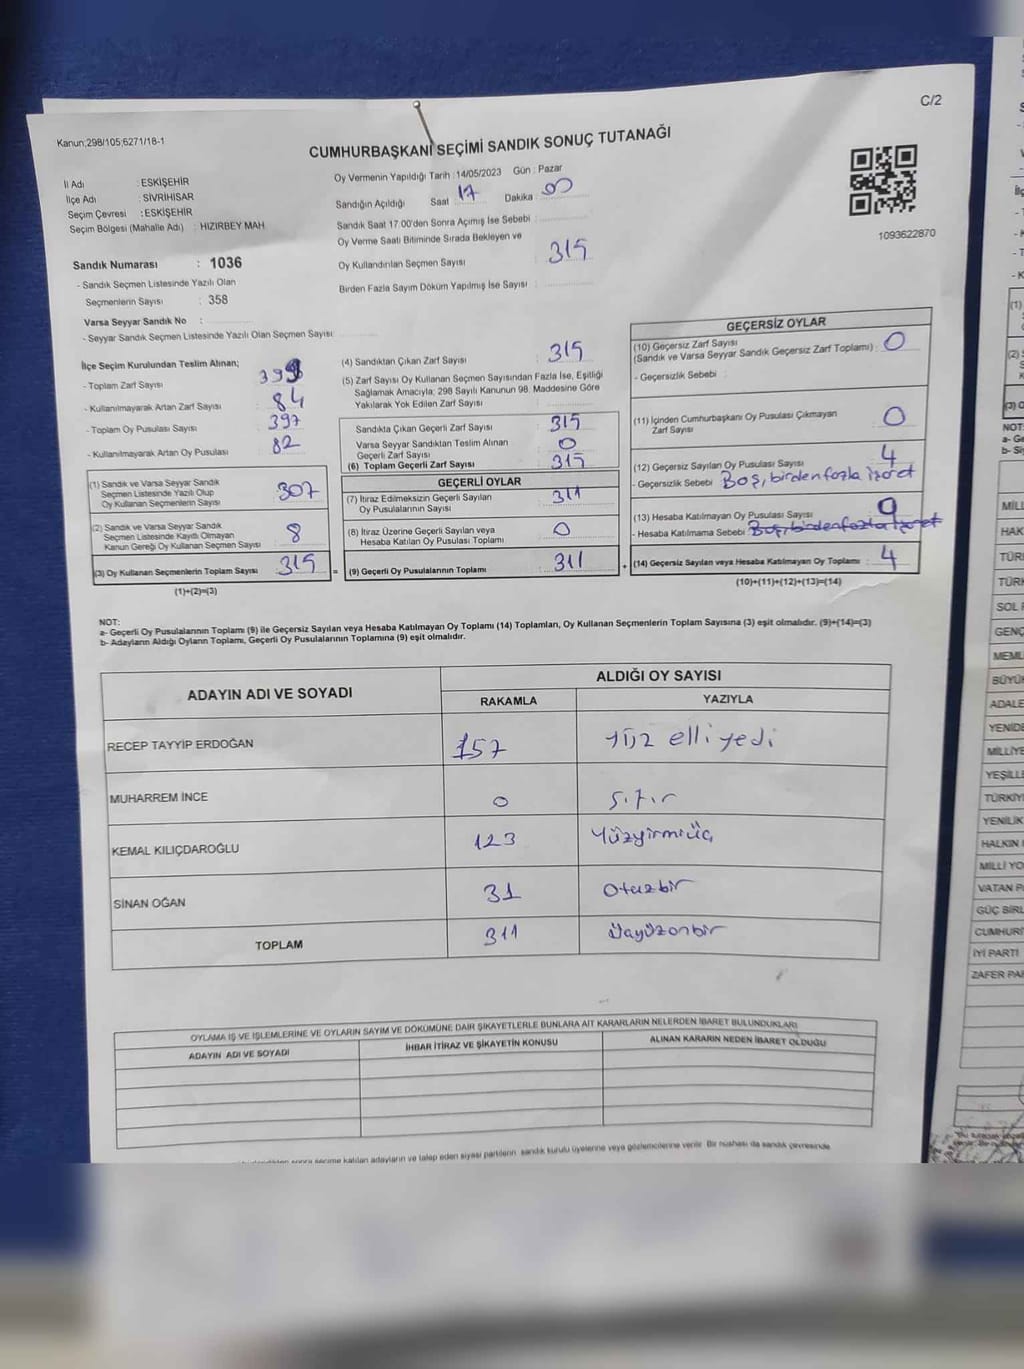 C/2
Kanun;298/105;6271/18-1
CUMHURBAŞKANI SEÇİMİ SANDIK SONUÇ TUTANAĞI
İl Adı : ESKİŞEHİR
İlçe Adı : SİVRİHİSAR
Seçim Çevresi : ESKİŞEHİR
Seçim Bölgesi (Mahalle Adı) : HIZIRBEY MAH
Sandık Numarası : 1036
- Sandık Seçmen Listesinde Yazılı Olan
Seçmenlerin Sayısı : 358
Varsa Seyyar Sandık No :
- Seyyar Sandık Seçmen Listesinde Yazılı Olan Seçmen Sayısı
Oy Vermenin Yapıldığı Tarih :14/05/2023 Gün : Pazar
Sandığın Açıldığı Saat 17 Dakika 00
Sandık Saat 17.00'den Sonra Açımış İse Sebebi :
Oy Verme Saati Bitiminde Sırada Bekleyen ve
Oy Kullandırılan Seçmen Sayısı : 315
Birden Fazla Sayım Döküm Yapılmış İse Sayısı :
1093622870
İlçe Seçim Kurulundan Teslim Alınan;
- Toplam Zarf Sayısı
- Kullanılmayarak Artan Zarf Sayısı : 84
- Toplam Oy Pusulası Sayısı : 397
- Kullanılmayarak Artan Oy Pusulası : 82
(1) Sandık ve Varsa Seyyar Sandık
Seçmen Listesinde Yazılı Olup
Oy Kullanan Seçmenlerin Sayısı : 307
(2) Sandık ve Varsa Seyyar Sandık
Seçmen Listesinde Kayıtlı Olmayan
Kanun Gereği Oy Kullanan Seçmen Sayısı : 8
(3) Oy Kullanan Seçmenlerin Toplam Sayısı : 315
(1)+(2)=(3)
(4) Sandıktan Çıkan Zarf Sayısı : 315
(5) Zarf Sayısı Oy Kullanan Seçmen Sayısından Fazla İse, Eşitliği
Sağlamak Amacıyla; 298 Sayılı Kanunun 98. Maddesine Göre
Yakılarak Yok Edilen Zarf Sayısı :
Sandıkta Çıkan Geçerli Zarf Sayısı : 315
Varsa Seyyar Sandıktan Teslim Alınan
Geçerli Zarf Sayısı : 0
(6) Toplam Geçerli Zarf Sayısı : 315
GEÇERLİ OYLAR
(7) İtiraz Edilmeksizin Geçerli Sayılan
Oy Pusulalarının Sayısı : 311
(8) İtiraz Üzerine Geçerli Sayılan veya
Hesaba Katılan Oy Pusulası Toplamı : 0
= (9) Geçerli Oy Pusulalarının Toplamı : 311
GEÇERSİZ OYLAR
(10) Geçersiz Zarf Sayısı
(Sandık ve Varsa Seyyar Sandık Geçersiz Zarf Toplamı) : 0
- Geçersizlik Sebebi :
(11) İçinden Cumhurbaşkanı Oy Pusulası Çıkmayan
Zarf Sayısı : 0
(12) Geçersiz Sayılan Oy Pusulası Sayısı : 4
- Geçersizlik Sebebi Boş, birden fazla işaret
(13) Hesaba Katılmayan Oy Pusulası Sayısı
- Hesaba Katılmama Sebebi Boş, birden fazla işaret
+ (14) Geçersiz Sayılan veya Hesaba Katılmayan Oy Toplamı : 4
(10)+(11)+(12)+(13)=(14)
NOT:
a- Geçerli Oy Pusulalarının Toplamı (9) ile Geçersiz Sayılan veya Hesaba Katılmayan Oy Toplamı (14) Toplamları, Oy Kullanan Seçmenlerin Toplam Sayısına (3) eşit olmalıdır. (9)+(14)=(3)
b- Adayların Aldığı Oyların Toplamı, Geçerli Oy Pusulalarının Toplamına (9) eşit olmalıdır.
ADAYIN ADI VE SOYADI
ALDIĞI OY SAYISI
RAKAMLA YAZIYLA
RECEP TAYYİP ERDOĞAN 157 yüz elli yedi
MUHARREM İNCE 0 sıfır
KEMAL KILIÇDAROĞLU 123 Yüzyirmiüç
SİNAN OĞAN 31 Otuzbir
TOPLAM 311 Üçyüzonbir
OYLAMA İŞ VE İŞLEMLERİNE VE OYLARIN SAYIM VE DÖKÜMÜNE DAİR ŞİKAYETLERLE BUNLARA AİT KARARLARIN NELERDEN İBARET BULUNDUKLARI
ADAYIN ADI VE SOYADI İHBAR İTİRAZ VE ŞİKAYETİN KONUSU ALINAN KARARIN NEDEN İBARET OLDUĞU
sonra seçime katılan adayların ve talep eden siyasi partilerin sandık kurulu üyelerine veya gözlemcilerine verilir. Bir nüshası da sandık çevresinde
(1)
(2)
NOT:
a- Ge
b- Si
MİLL
HAK
TÜR
TÜRK
SOL F
GENÇ
MEML
BÜYÜK
ADALE
YENİDE
MİLLİYE
YEŞİLLE
TÜRKİY
YENİLİK
HALKIN
MİLLİ YO
VATAN P
GÜÇ BİRL
CUMHURİ
İYİ PARTİ
ZAFER PAR